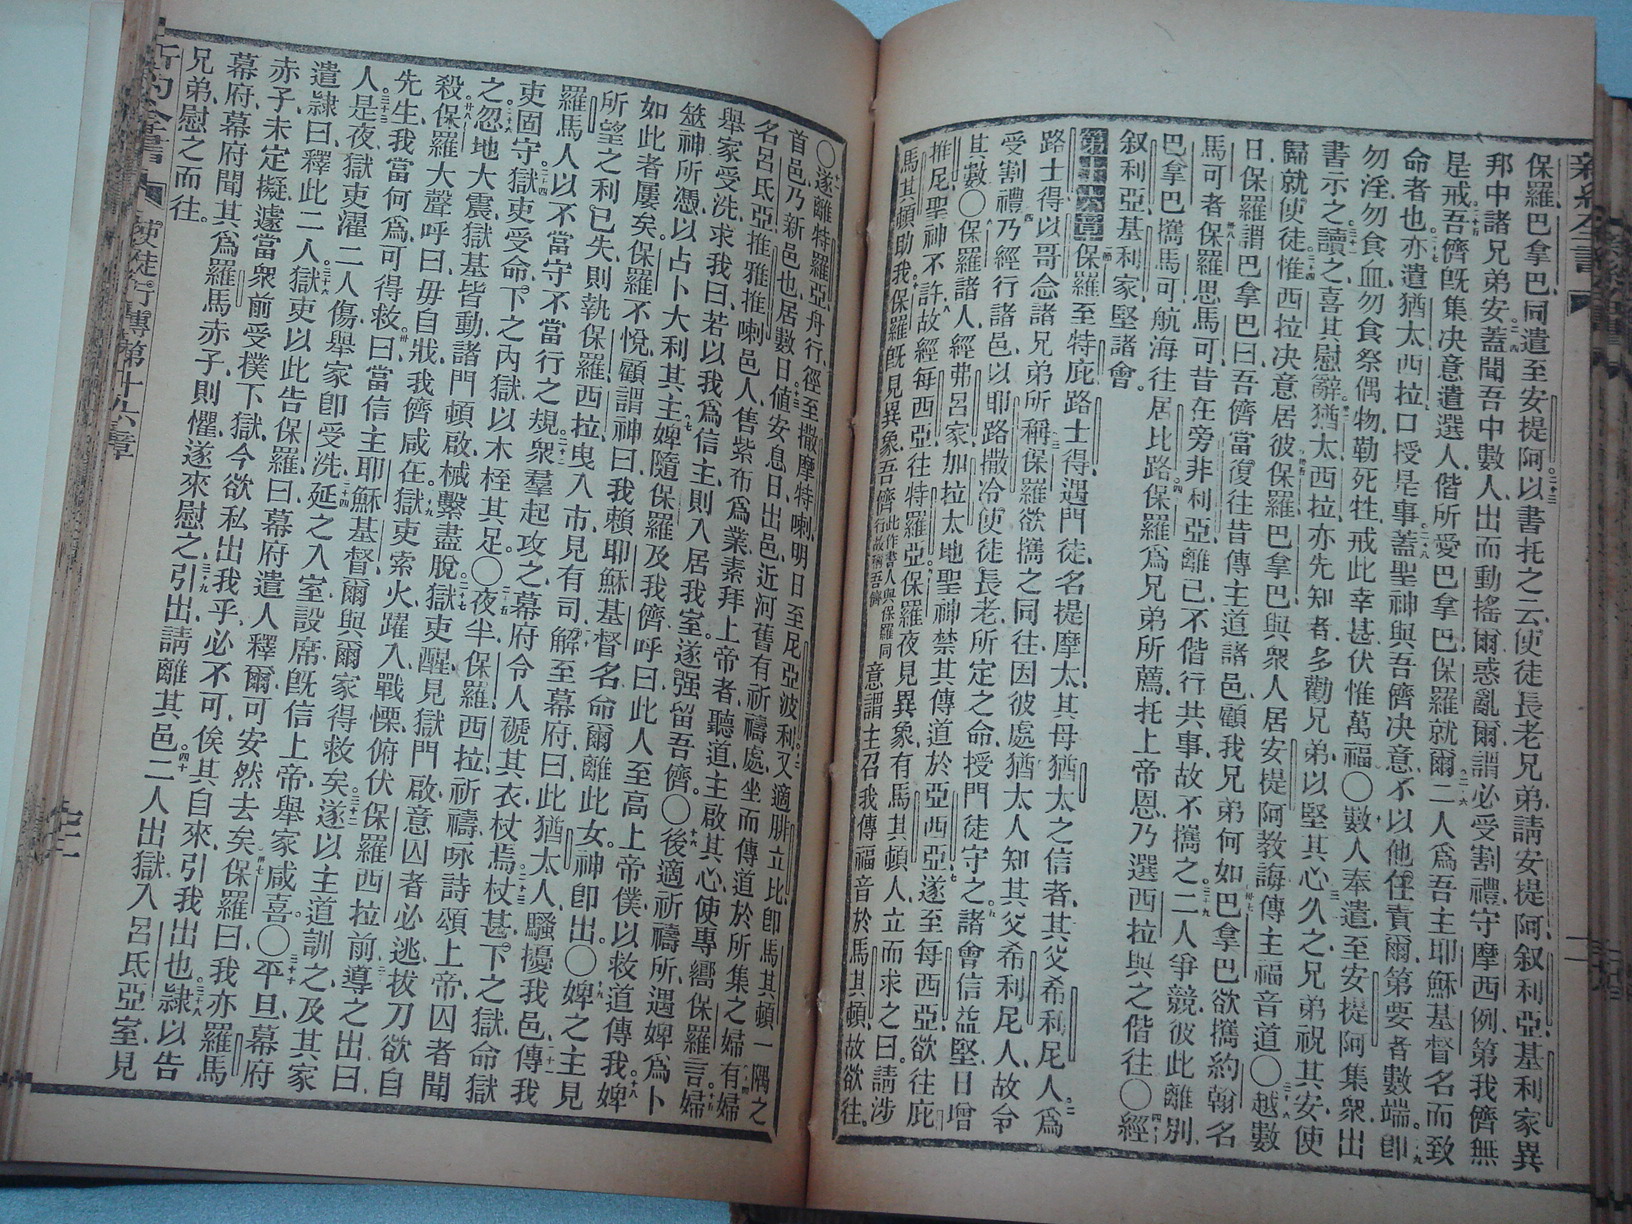 保羅巴拿巴同遣至安提阿以書托之云使徒長老兄弟請安提阿叙利亞基利家異
邦中諸兄弟安蓋聞吾中數人出而動搖爾惑亂爾謂必受割禮守摩西例第我儕無
是戒吾儕既集決意遣選人偕所愛巴拿巴保羅就爾二人爲吾主耶穌基督名而致
命者也亦遣猶太西拉口授是事蓋聖神與吾儕決意不以他任責爾第要者數端卽
勿淫勿食血勿食祭偶物勒死牲戒此幸甚伏惟萬福〇數人奉遣至安提阿集衆出
書示之讀之喜其慰辭猶太西拉亦先知者多勸兄弟以堅其心久之兄弟祝其安使
歸就使徒惟西拉決意居彼保羅巴拿巴與衆人居安提阿教誨傳主福音道〇越數
日保羅謂巴拿巴曰吾儕當復往昔傳主道諸邑顧我兄弟何如巴拿巴欲攜約翰名
馬可者保羅思馬可昔在旁非利亞離已不偕行共事故不攜之二人爭競彼此離別
巴拿巴攜馬可航海往居比路保羅爲兄弟所薦托上帝恩乃選西拉與之偕往〇經
叙利亞基利家堅諸會
第十六章保羅至特庇路士得遇門徒名提摩太其母猶太之信者其父希利尼人爲
路士得以哥念諸兄弟所稱保羅欲攜之同往因彼處猶太人知其父希利尼人故令
受割禮乃經行諸邑以耶路撒冷使徒長老所定之命授門徒守之諸會信益堅日增
其數〇保羅諸人經弗呂家加拉太地聖神禁其傳道於亞西亞遂至每西亞欲往庇
推尼聖神不許故經每西亞往特羅亞保羅夜見異象有馬其頓人立而求之曰請涉
馬其頓助我保羅既見異象吾儕此作書人與保羅同行故稱吾儕意謂主召我傳福音於馬其頓故欲往
〇遂離特羅亞舟行徑至撒摩特喇明日至尼亞波利又適腓立比卽馬其頓一隅之
首邑乃新邑也居數日値安息日出邑近河舊有祈禱處坐而傳道於所集之婦有婦
名呂氐亞推雅推喇邑人售紫布爲業素拜上帝者聽道主啟其心使專嚮保羅言婦
舉家受洗求我曰若以我爲信主則入居我室遂强留吾儕〇後適祈禱所遇婢爲卜
筮神所憑以占卜大利其主婢隨保羅及我儕呼曰此人至高上帝僕以救道傳我婢
如此者屢矣保羅不悅顧謂神曰我賴耶穌基督名命爾離此女神卽出〇婢之主見
所望之利已失則執保羅西拉曳入市見有司解至幕府曰此猶太人騷擾我邑傳我
羅馬人以不當守不當行之規衆羣起攻之幕府令人褫其衣杖焉杖甚下之獄命獄
吏固守獄吏受命下之內獄以木桎其足〇夜半保羅西拉祈禱咏詩頌上帝囚者聞
之忽地大震獄基皆動諸門頓啟械繫盡脫獄吏醒見獄門啟意囚者必逃拔刀欲自
殺保羅大聲呼曰毋自戕我儕咸在獄吏索火躍入戰慄俯伏保羅西拉前導之出曰
先生我當何爲可得救曰當信主耶穌基督爾與爾家得救矣遂以主道訓之及其家
人是夜獄吏濯二人傷舉家卽受洗延之入室設席既信上帝舉家咸喜〇平旦幕府
遣隸曰釋此二人獄吏以此告保羅曰幕府遣人釋爾可安然去矣保羅曰我亦羅馬
赤子未定擬遽當衆前受撲下獄今欲私出我乎必不可俟其自來引我出也隸以告
幕府幕府聞其爲羅馬赤子則懼遂來慰之引出請離其邑二人出獄入呂氐亞室見
兄弟慰之而往
新約全書 使徒行傳第十六章